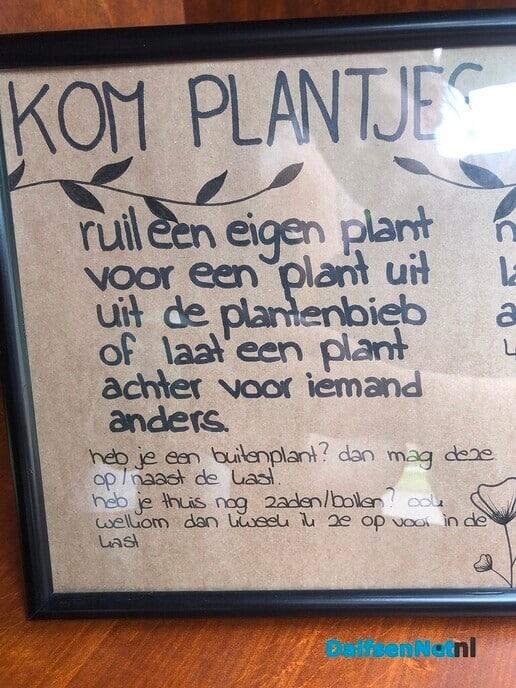 KOM PLANTJES
ruil een eigen plant
voor een plant uit
uit de plantenbieb
of laat een plant
achter voor iemand
anders.
heb je een buitenplant? dan mag deze
op/naast de kast.
heb je thuis nog zaden/bollen? ook
welkom dan kweek ik ze op voor in de
kast
DalfsenNet.nl